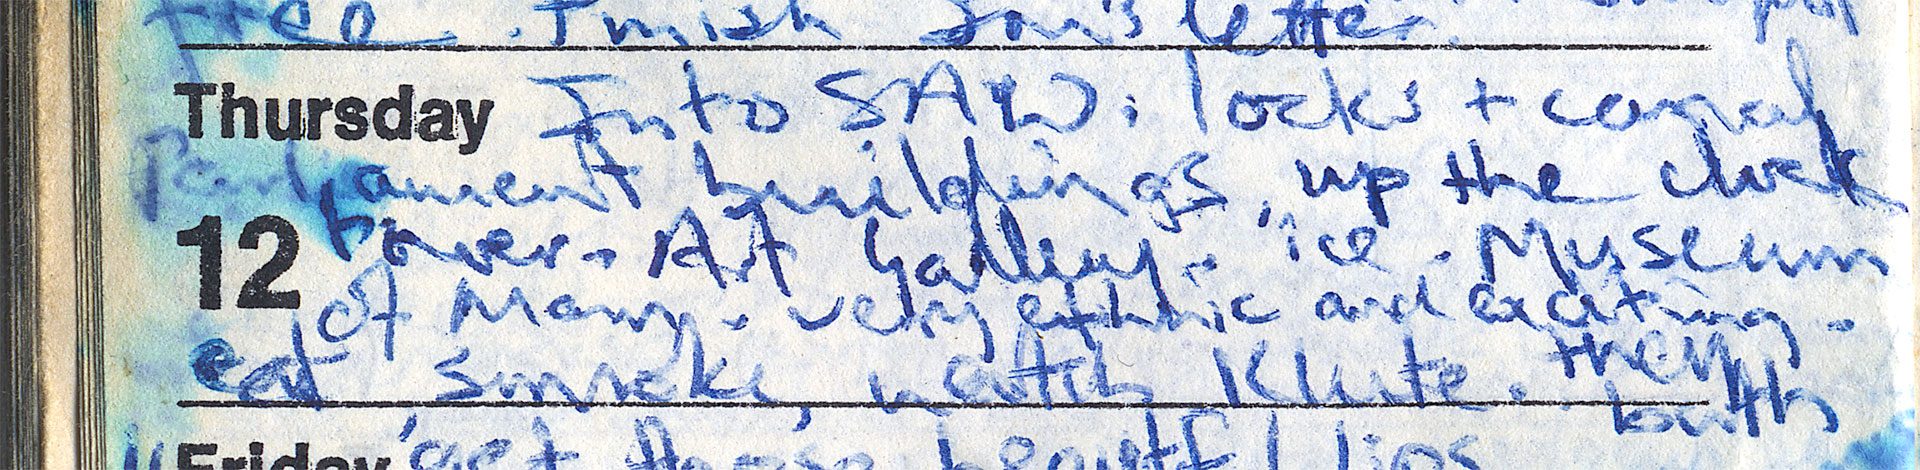 free. Finish Jon's letter.
Thursday Into SAW. locks + canal
Parliament buildings, up the clock
12 tower. Art Gallery. ice. Museum
of Man. very ethnic and exciting.
eat smoke, watch Klute. they
both
Friday get those beautiful lips